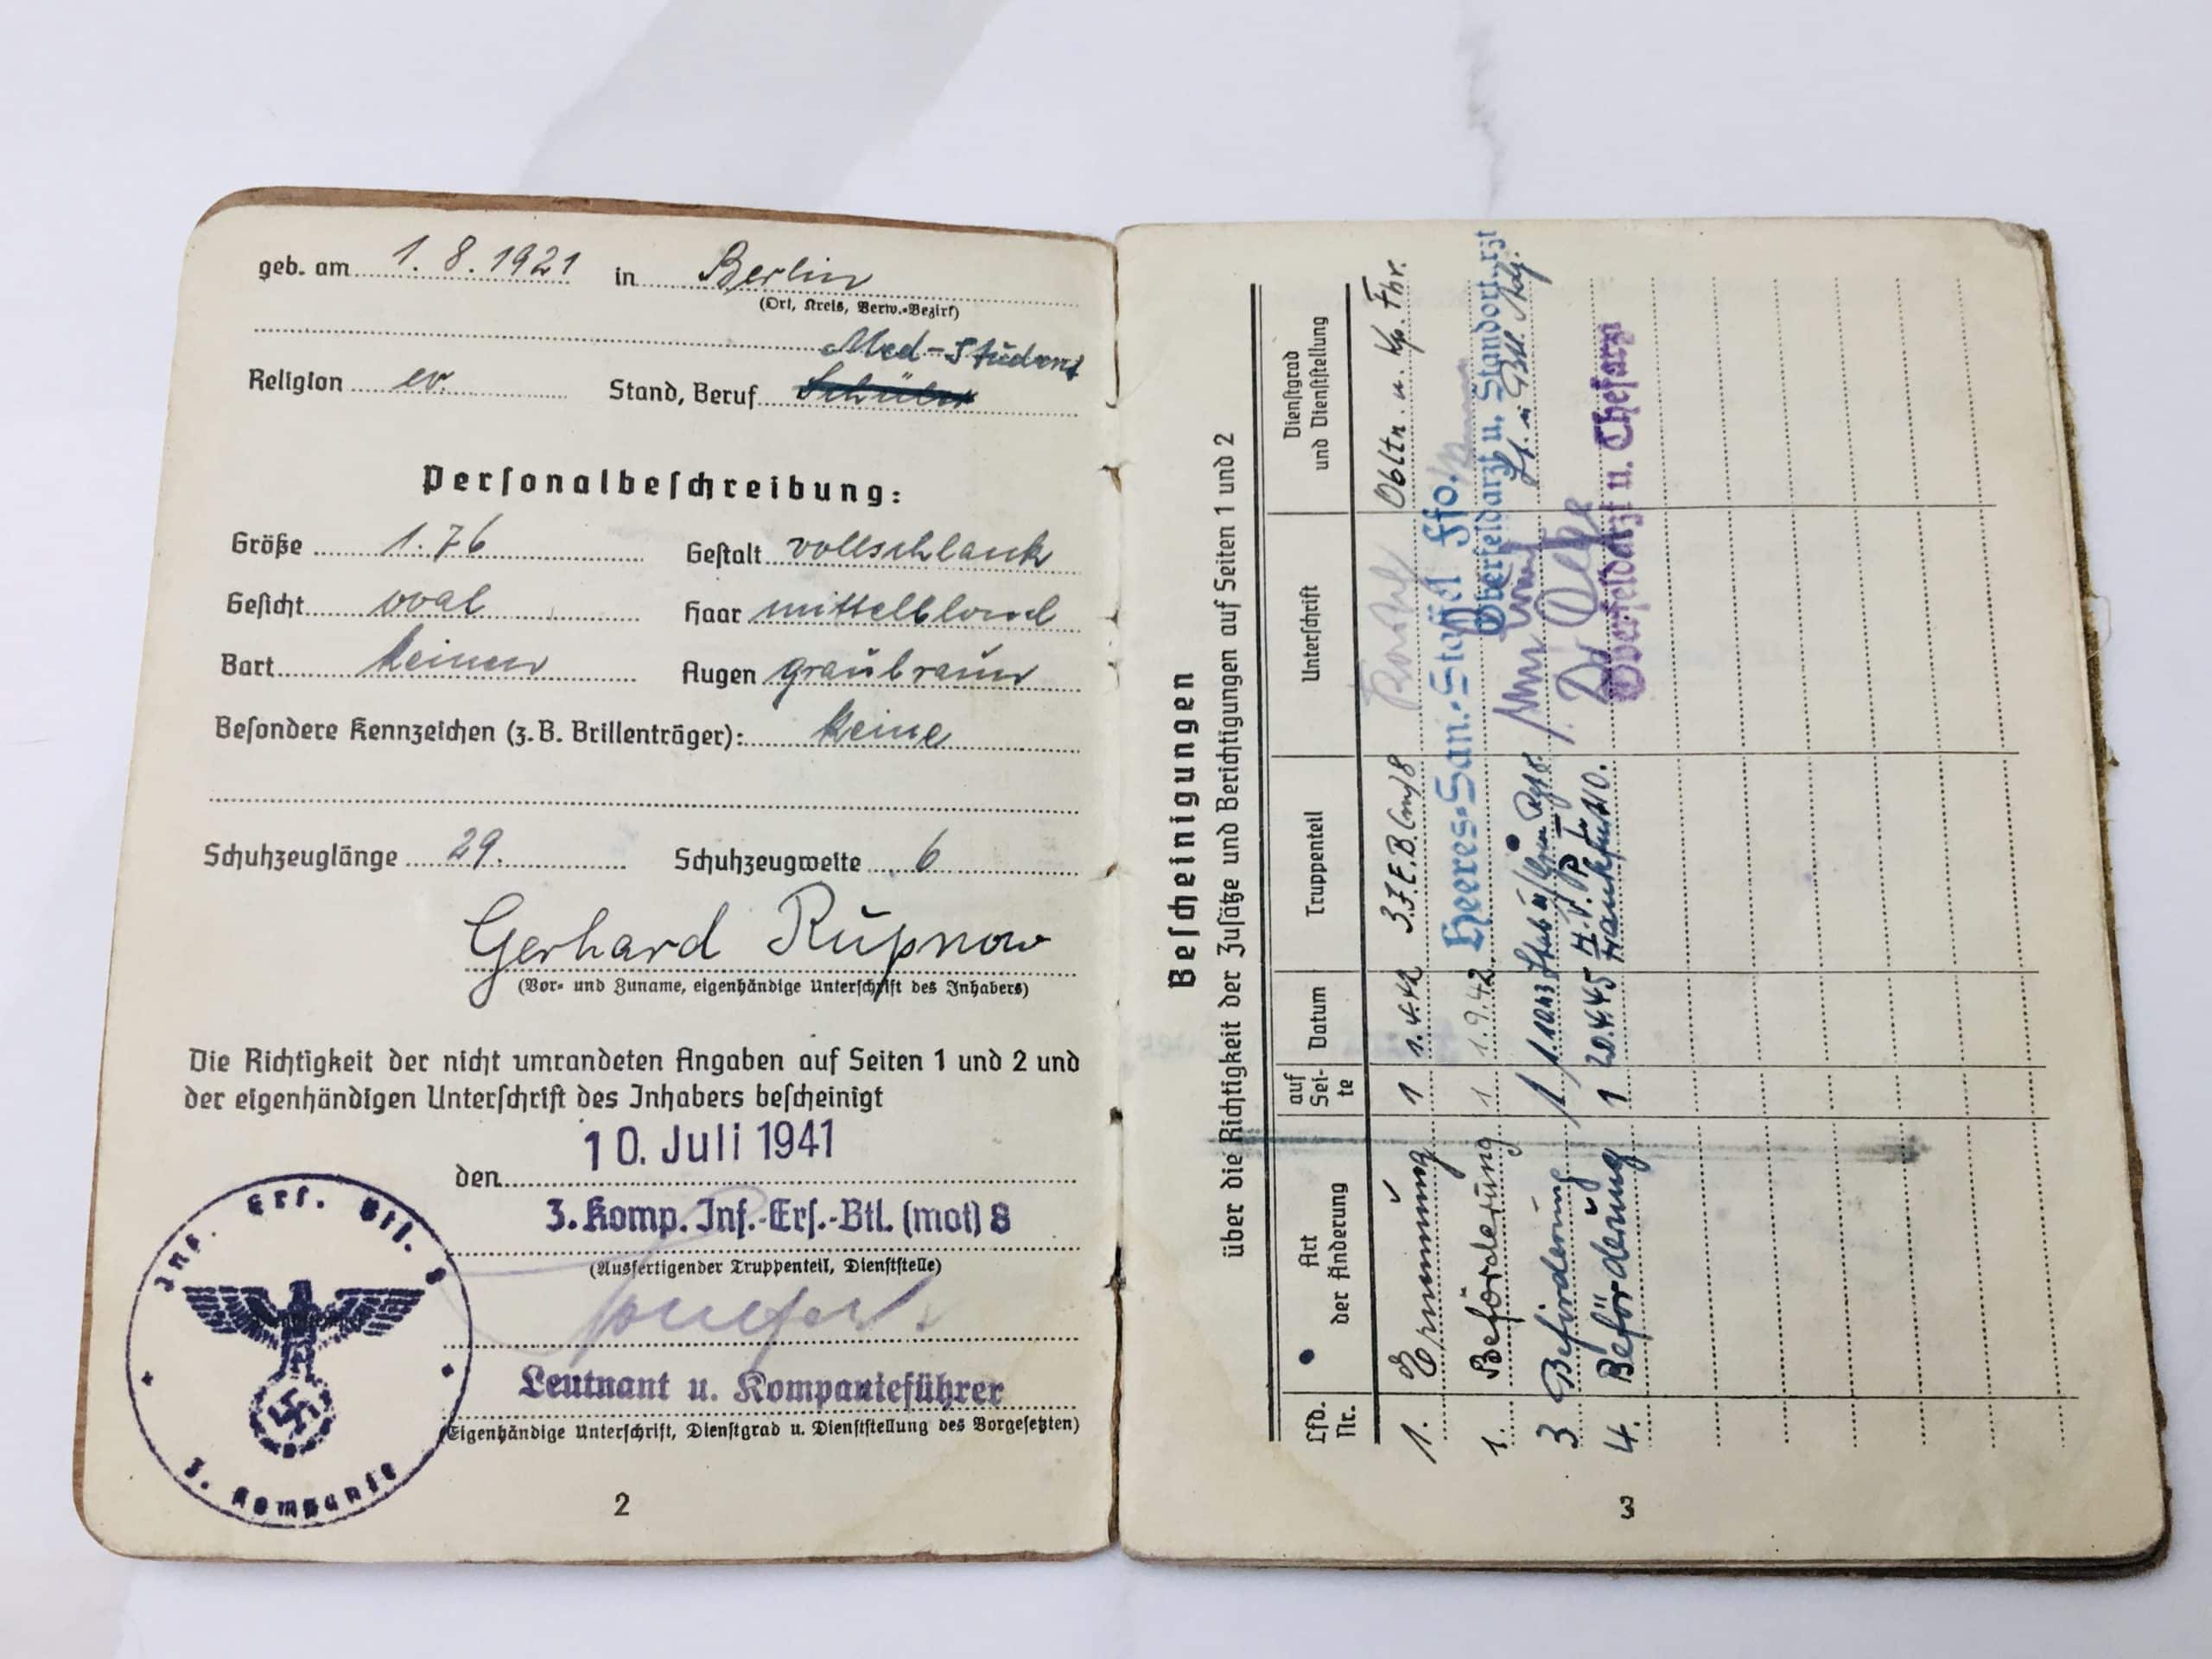 geb. am 1. 8. 1921 in Berlin
(Ort, Kreis, Verw.-Bezirk)
Med-Student
Religion ev. Stand, Beruf Schüler
Personalbeschreibung:
Größe 1.76 Gestalt vollschlank
Gesicht oval Haar mittelblond
Bart keinen Augen graubraun
Besondere Kennzeichen (z.B. Brillenträger): keine
Schuhzeuglänge 29. Schuhzeugweite 6
Gerhard Rupnow
(Vor- und Zuname, eigenhändige Unterschrift des Inhabers)
Die Richtigkeit der nicht umrandeten Angaben auf Seiten 1 und 2 und
der eigenhändigen Unterschrift des Inhabers bescheinigt
den 10. Juli 1941
3. Komp. Inf.-Ers.-Btl. (mot) 8
(Ausfertigender Truppenteil, Dienststelle)
Leutnant u. Kompanieführer
(Eigenhändige Unterschrift, Dienstgrad u. Dienststellung des Vorgesetzten)
Inf. Ers. Btl. 8
3. Kompanie
2
Bescheinigungen
über die Richtigkeit der Zusätze und Berichtigungen auf Seiten 1 und 2
Lfd. Nr. Art der Änderung auf Seite Datum Truppenteil Unterschrift Dienstgrad und Dienststellung
1. Ernennung 1 1.4.42 3.J.E.B.(mot)8 Obltn. u. Kp. Fhr.
Heeres-San.-Staffel Ffo.
1. Beförderung 1 1.9.42 Oberfeldarzt u. Standortarzt
3 Beförderung 1 1.10.43 Stab
4. Beförderung 1 20.4.45 Dr
Oberfeldarzt u. Chefarzt
3